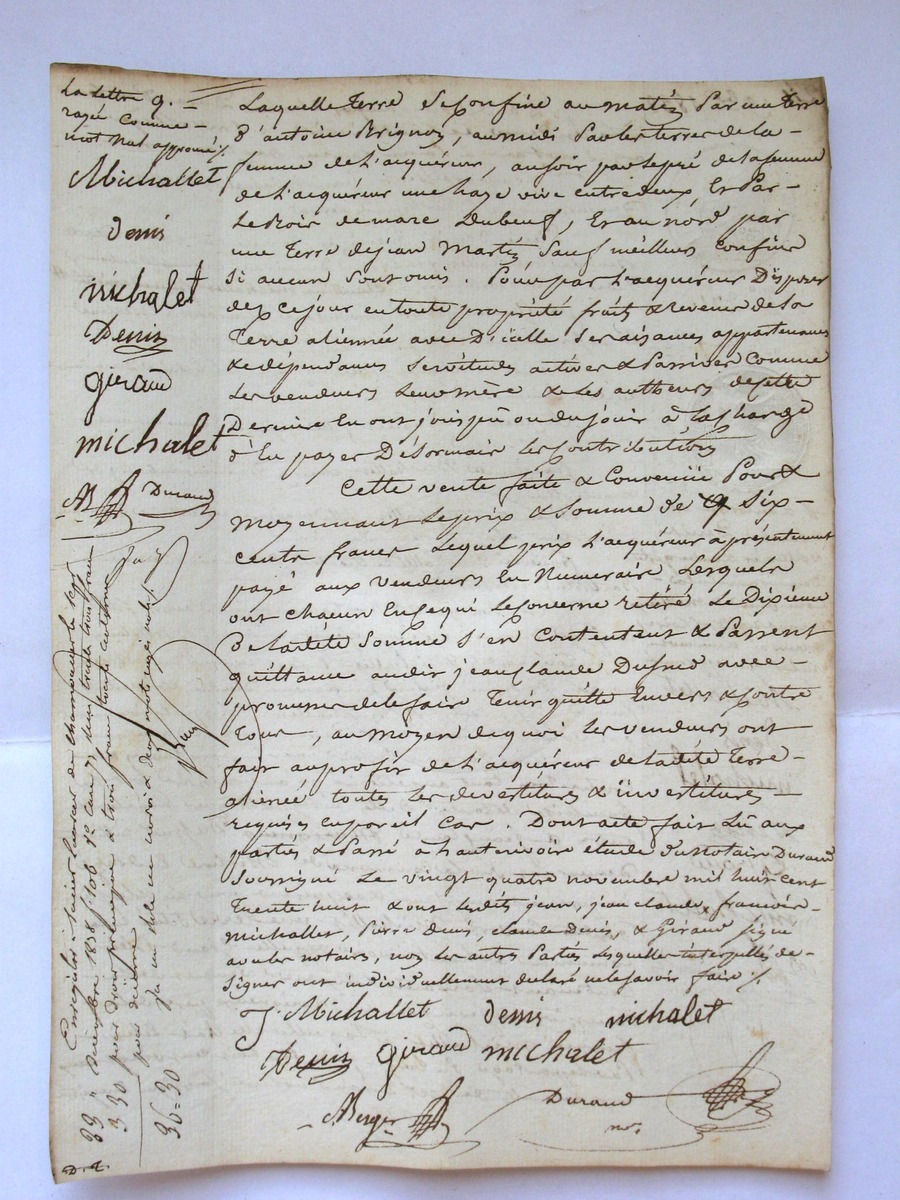 La lettre q. –
rayée comme –
mot nul approuvé ./.
Michallet
denis
michalet
Denis
giraud
michalet
AB Durand
Laquelle terre se confine au matin par une terre
d'antoine Brignon, au midi par les terres de la –
femme de l'acquéreur, au soir par le pré de la femme
de l'acquéreur une haye vive entre deux, Et Par –
Le Bois de marc Dubeuf, Et au nord par
une terre de jean Martin, Sauf meilleurs confins
Si aucun sont omis. Pour par l'acquéreur Disposer
dez ce jour en toute propriété fruits & revenus de la
Terre aliennée avec D'icelle ses aisances appartenances
& dépendances servitudes actives & Passives Comme
Les vendeurs Leur mère & Les autheurs de cette
Derniere En ont joui pû ou du jouir à la charge
d'En payer Désormais les Contributions
Cette vente faite & Convenüe Pour &
moyennant Le prix & Somme de q Six –
cents francs Lequel prix l'acquéreur à présentement
payé aux vendeurs En Numeraire Lesquels
ont chacun En ce qui Le Concerne retiré Le Dixieme
De Ladite Somme s'en Contentent & Passent
quittance audit jean Claude Dufrud avec –
promesse de le faire Tenir quitte Envers & Contre
Tous, au moyen de quoi les vendeurs ont
fait au profit de l'acquéreur de ladite Terre –
alienée toutes les devestitures & investitures
requises en pareil cas. Dont acte fait Lû aux
parties & Passé à hauterivoire étude du notaire Durand
Soussigné Le vingt quatre novembre mil huit cent
Trente huit & ont lesdits jean, jean claude, françois –
michallet, Pierre Denis, claude denis, & Giraud signé
avec les notaires, non les autres Parties Lesquelles interpellés de –
signer ont individuellement declaré ne le savoir faire ./.
J. Michallet denis michalet
Denis giraud michalet
ABerger Durand
no.
Enregistré à Saint Laurent de chamousset le sept
décembre 1838 f. 106 Ro. Case 7. Reçu trente trois francs
pour droit principal & trois francs trente centimes
pour décime
33 "
3 30
36=30
D. q.